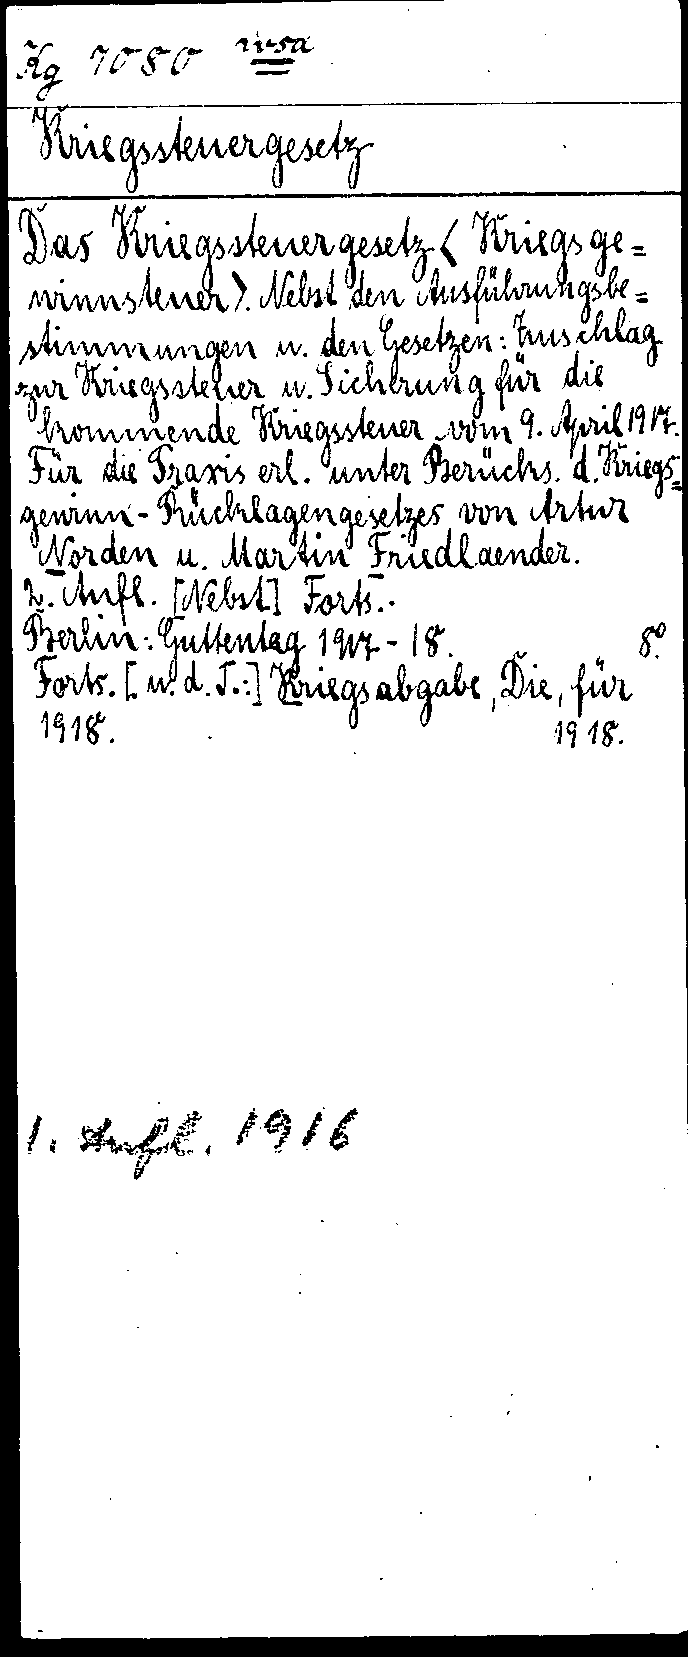 Kg 7080 wsa
Kriegssteuergesetz
Das Kriegssteuergesetz < Kriegsge=
winnsteuer >. Nebst den Ausführungsbe=
stimmungen u. den Gesetzen: Zuschlag
zur Kriegssteuer u. Sicherung für die
kommende Kriegssteuer vom 9. April 1917.
Für die Praxis erl. unter Berücks. d. Kriegs=
gewinn-Rücklagengesetzes von Artur
Norden u. Martin Friedlaender.
2. Aufl. [Nebst] Forts..
Berlin: Guttentag 1917-18. 8°.
Forts. [u. d. T.:] Kriegsabgabe, Die, für
1918. 1918.
1. Aufl. 1916